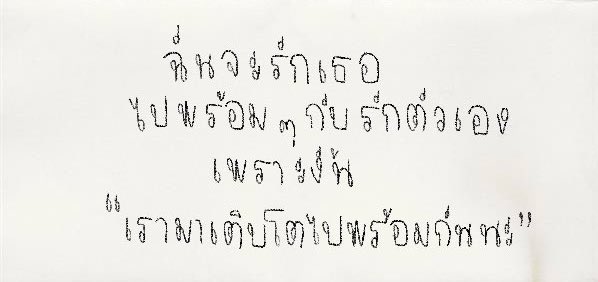 ฉันจะรักเธอ
ไปพร้อมๆกับรักตัวเอง
เพราะงั้น
“เรามาเติบโตไปพร้อมกันนะ”